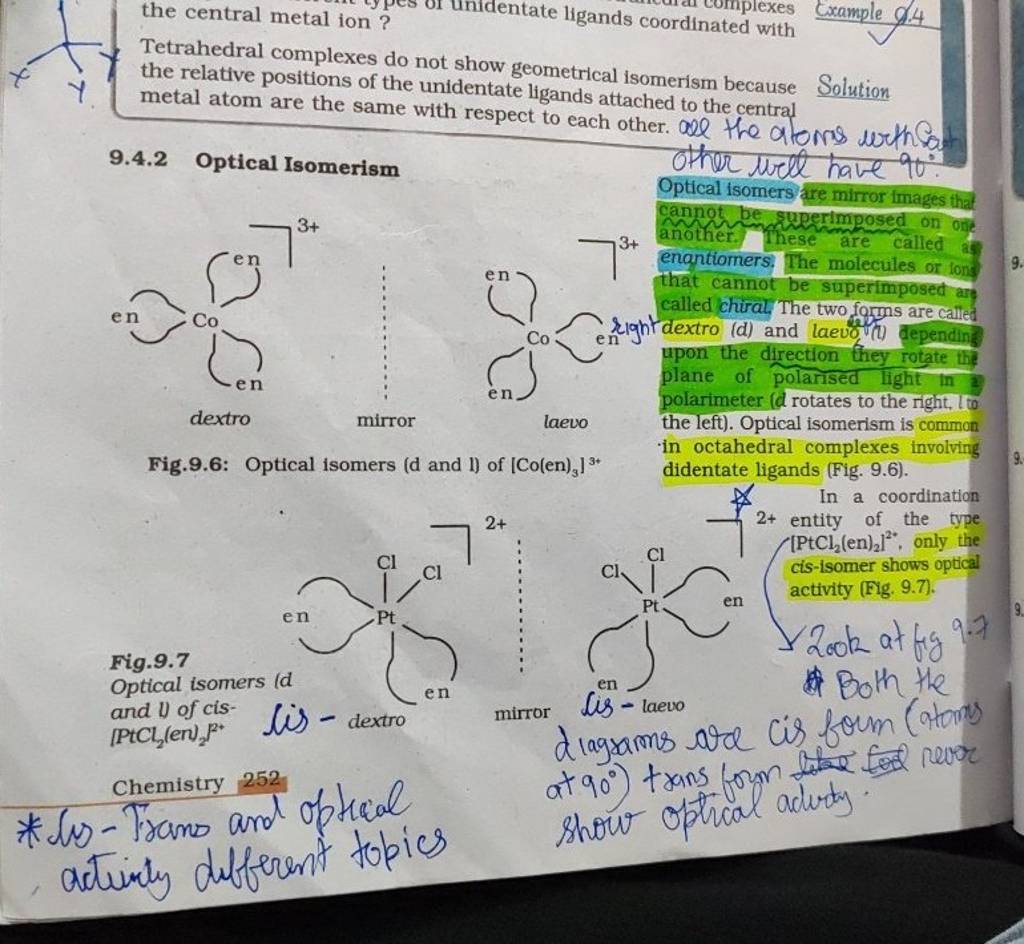 types of unidentate ligands coordinated with
complexes
the central metal ion ?
Example 9.4
Tetrahedral complexes do not show geometrical isomerism because
the relative positions of the unidentate ligands attached to the central
metal atom are the same with respect to each other.
Solution
all the atoms with
other will have 90°.
X
Y
Y
9.4.2 Optical Isomerism
3+
en
en
Co
en
dextro
mirror
3+
en
Co
en
en
laevo
Fig.9.6: Optical isomers (d and l) of [Co(en)3]3+
Optical isomers are mirror images that
cannot be superimposed on one
another. These are called as
enantiomers. The molecules or ions
that cannot be superimposed are
called chiral. The two forms are called
right dextro (d) and laevo left (l) depending
upon the direction they rotate the
plane of polarised light in a
polarimeter (d rotates to the right, l to
the left). Optical isomerism is common
in octahedral complexes involving
didentate ligands (Fig. 9.6).
In a coordination
entity of the type
[PtCl2(en)2]2+, only the
cis-isomer shows optical
activity (Fig. 9.7).
2+
Cl
Cl
en
Pt
en
2+
Cl
Cl
Pt
en
en
Fig.9.7
Optical isomers (d
and l) of cis-
[PtCl2(en)2]2+
Cis - dextro
mirror
Cis - laevo
Look at fig 9.7
Both the
diagrams are cis form (atoms
at 90°) trans form never
show optical activity.
Chemistry 252
* Cis - Trans and optical
activity different topics
9.
9.
9.